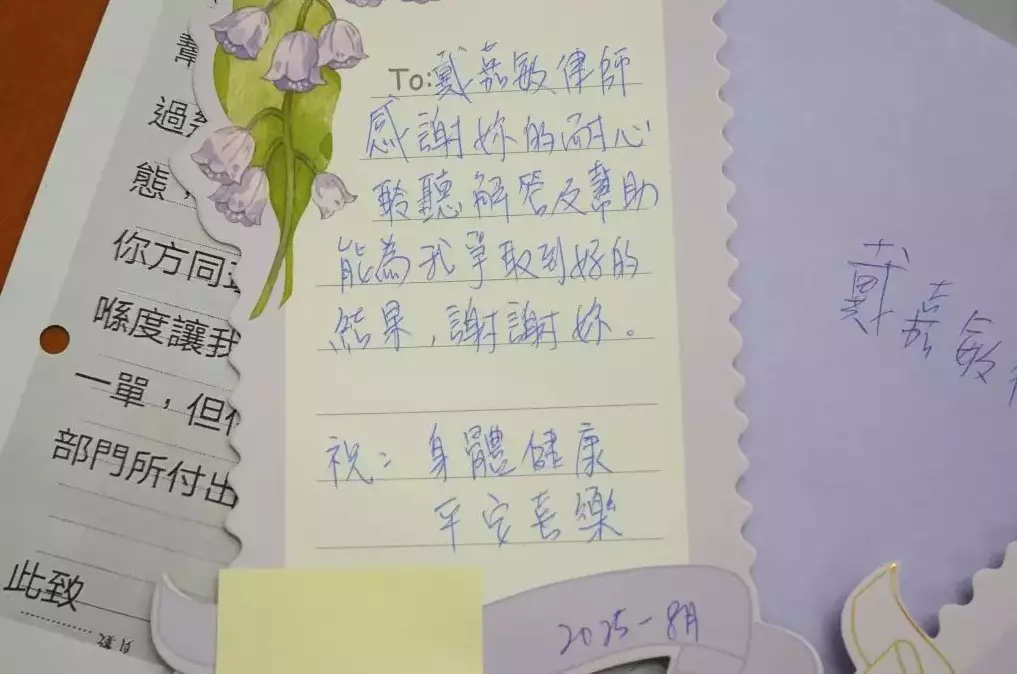 To:戴嘉敏律師
感謝妳的耐心
聆聽解答及幫助
能為我爭取到好的
結果,謝謝妳。
祝: 身體健康
平安喜樂
2025-8月
過
態,
你方同
喺度讓我
一單,但
部門所付出
此致
戴嘉敏